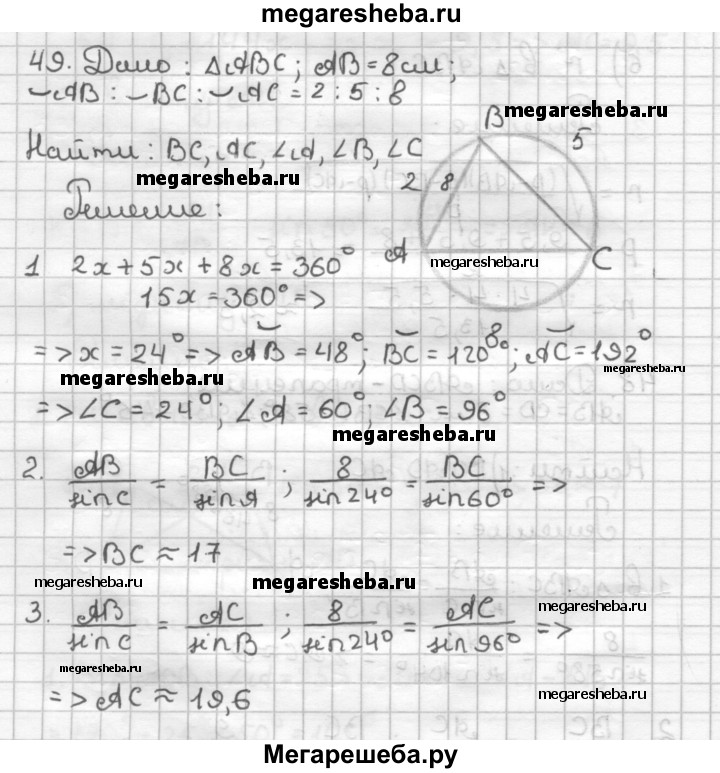 megaresheba.ru
49. Дано: ΔABC; AB = 8 см;
◡AB : ◡BC : ◡AC = 2 : 5 : 8
megaresheba.ru
B
5
Найти: BC, AC, ∠A, ∠B, ∠C
megaresheba.ru
2 8
Решение:
A
megaresheba.ru
C
1 2x + 5x + 8x = 360°
15x = 360° =>
=> x = 24° => ◡AB = 48°; ◡BC = 120°; ◡AC = 192°
8
megaresheba.ru
megaresheba.ru
=> ∠C = 24°; ∠A = 60°; ∠B = 96°
megaresheba.ru
2. AB/sin C = BC/sin A ; 8/sin 24° = BC/sin 60° =>
=> BC ≈ 17
megaresheba.ru
megaresheba.ru
megaresheba.ru
3. AB/sin C = AC/sin B ; 8/sin 24° = AC/sin 96° =>
megaresheba.ru
megaresheba.ru
=> AC ≈ 19,6
Мегарешеба.ру